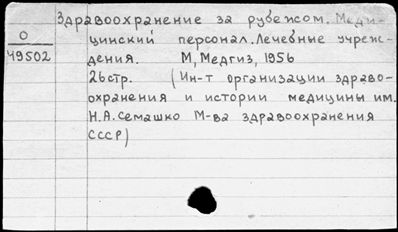 Здравоохранение за рубежом. Меди-
О
цинский персонал. Лечебные учреж-
49502
дения. М, Медгиз, 1956
26стр. (Ин-т организации здраво-
охранения и истории медицины им.
Н.А. Семашко М-ва здравоохранения
СССР)